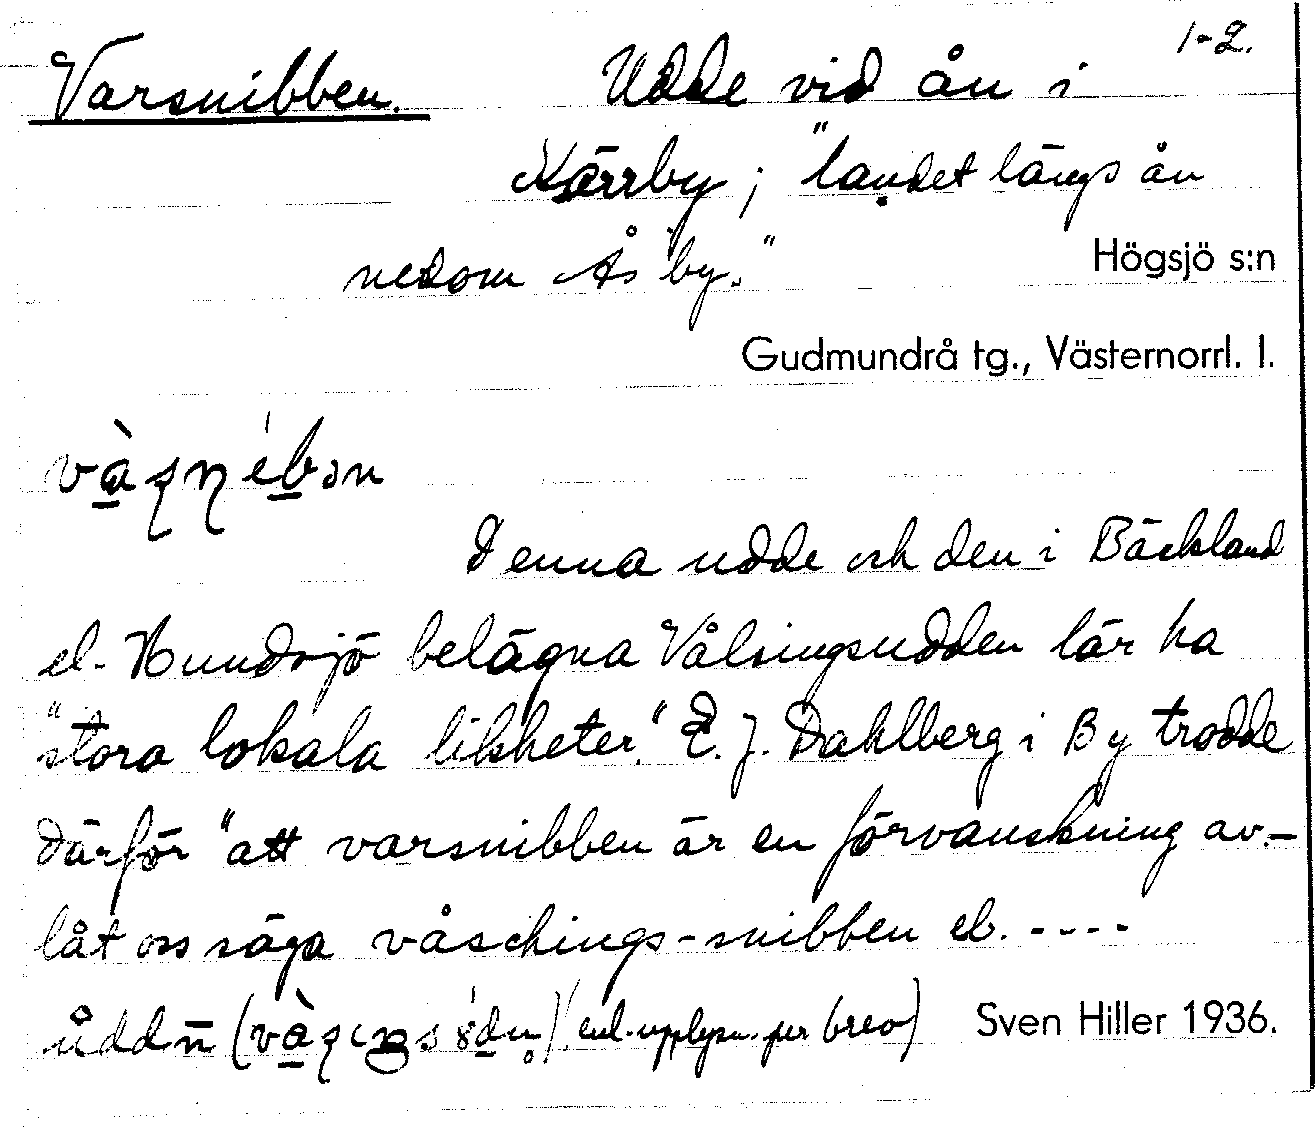 1-2.
Varsnibben. Udde vid ån i
Kärrby; "landet längs ån
nedom Ås by."
Högsjö s:n
Gudmundrå tg., Västernorrl. l.
Denna udde och den i Bäckland
el. Hundsjö belägna Vålsingsudden lär ha
"stora lokala likheter." E. J. Dahlberg i By trodde
därför "att varsnibben är en förvanskning av.-
låt oss säga våschings-snibben el. ----
ůddn̄ (enl. upplysn. per brev) Sven Hiller 1936.